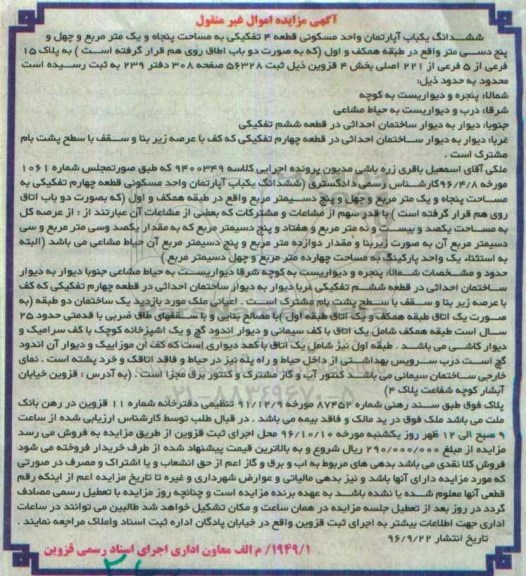 آگهی مزایده اموال غیر منقول
ششدانگ یکباب آپارتمان واحد مسکونی قطعه ۴ تفکیکی به مساحت پنجاه و یک متر مربع و چهل و
پنج دسی متر واقع در طبقه همکف و اول (که به صورت دو باب اطاق روی هم قرار گرفته است) به پلاک ۱۵
فرعی از ۵ فرعی از ۲۲۱ اصلی بخش ۴ قزوین ذیل ثبت ۵۶۳۲۸ صفحه ۳۰۸ دفتر ۲۳۹ به ثبت رسیده است
محدود به حدود ذیل:
شمالا: پنجره و دیواریست به کوچه
شرقا: درب و دیواریست به حیاط مشاعی
جنوبا: دیوار به دیوار ساختمان احداثی در قطعه ششم تفکیکی
غربا: دیوار به دیوار ساختمان احداثی در قطعه چهارم تفکیکی که کف با عرصه زیر بنا و سقف با سطح پشت بام
مشترک است .
ملکی آقای اسمعیل باقری زره باشی مدیون پرونده اجرایی کلاسه ۹۴۰۰۳۴۹ که طبق صورتمجلس شماره ۱۰۶۱
مورخه ۹۶/۴/۸ کارشناس رسمی دادگستری (ششدانگ یکباب آپارتمان واحد مسکونی قطعه چهارم تفکیکی به
مساحت پنجاه و یک متر مربع و چهل و پنج دسیمتر مربع واقع در طبقه همکف و اول (که بصورت دو باب اتاق
روی هم قرار گرفته است) با قدر سهم از مشاعات و مشترکات که بعضی از مشاعات آن عبارتند از : از عرصه کل
به مساحت یکصد و بیست و نه متر مربع و هفتاد و پنج دسیمتر مربع که به مقدار یکصد وسی متر مربع و سی
دسیمتر مربع آن به صورت زیربنا و مقدار دوازده متر مربع و پنج دسیمتر مربع آن حیاط مشاعی می باشد (البته
به استثناء یک واحد پارکینگ به مساحت چهارده متر مربع و چهل دسیمتر مربع)
حدود و مشخصات شمالا: پنجره و دیواریست به کوچه شرقا دیواریست به حیاط مشاعی جنوبا دیوار به دیوار
ساختمان احداثی در قطعه ششم تفکیکی غربا دیوار به دیوار ساختمان احداثی در قطعه چهارم تفکیکی که کف
با عرصه زیر بنا و سقف با سطح پشت بام مشترک است . اعیانی ملک مورد بازدید یک ساختمان دو طبقه (به
صورت یک اتاق طبقه همکف و یک اتاق طبقه اول) با مصالح بنایی و با سقفهای طاق ضربی با قدمتی حدود ۲۵
سال است طبقه همکف شامل یک اتاق با کف سیمانی و دیوار اندود گچ و یک آشپزخانه کوچک با کف سرامیک و
دیوار کاشی می باشد . طبقه اول نیز شامل یک اتاق با کمد دیواری است که کف آن موزاییک و دیوار آن اندود
گچ است درب سرویس بهداشتی از داخل حیاط و راه پله نیز در حیاط و فاقد اتاقک و خرد پشته است . نمای
خارجی ساختمان سیمانی می باشد کنتور آب و گاز مشترک و کنتور برق مجزا است . (به آدرس : قزوین خیابان
آبشار کوچه شفاعت پلاک ۴)
پلاک فوق طبق سند رهنی شماره ۸۷۴۵۲ مورخه ۹۱/۱۲/۹ تنظیمی دفترخانه شماره ۱۱ قزوین در رهن بانک
ملت می باشد ملک فوق در ید مالک و فاقد بیمه می باشد . در قبال طلب توسط کارشناس ارزیابی شده از ساعت
۹ صبح الی ۱۲ ظهر روز یکشنبه مورخه ۹۶/۱۰/۱۰ محل اجرای ثبت قزوین از طریق مزایده به فروش می رسد
مزایده از مبلغ ۲۹۰/۰۰۰/۰۰۰ ریال شروع و به بالاترین قیمت پیشنهاد شده از طرف خریدار فروخته می شود
فروش کلا نقدی می باشد بدهی های مربوط به آب و برق و گاز اعم از حق انشعاب و یا اشتراک و مصرف در صورتی
که مورد مزایده دارای آنها باشد و نیز بدهی مالیاتی و عوارض شهرداری و غیره تا تاریخ مزایده اعم از اینکه رقم
قطعی آنها معلوم شده یا نشده باشد به عهده برنده مزایده است و چنانچه روز مزایده با تعطیل رسمی مصادف
گردد در روز بعد از تعطیل جلسه مزایده در همان ساعت و مکان تشکیل خواهد شد طالبین می توانند در ساعات
اداری جهت اطلاعات بیشتر به اجرای ثبت قزوین واقع در خیابان پادگان اداره ثبت اسناد واملاک مراجعه نمایند .
تاریخ انتشار ۹۶/۹/۲۲
۱۹۴۹/۱/ م الف معاون اداری اجرای اسناد رسمی قزوین